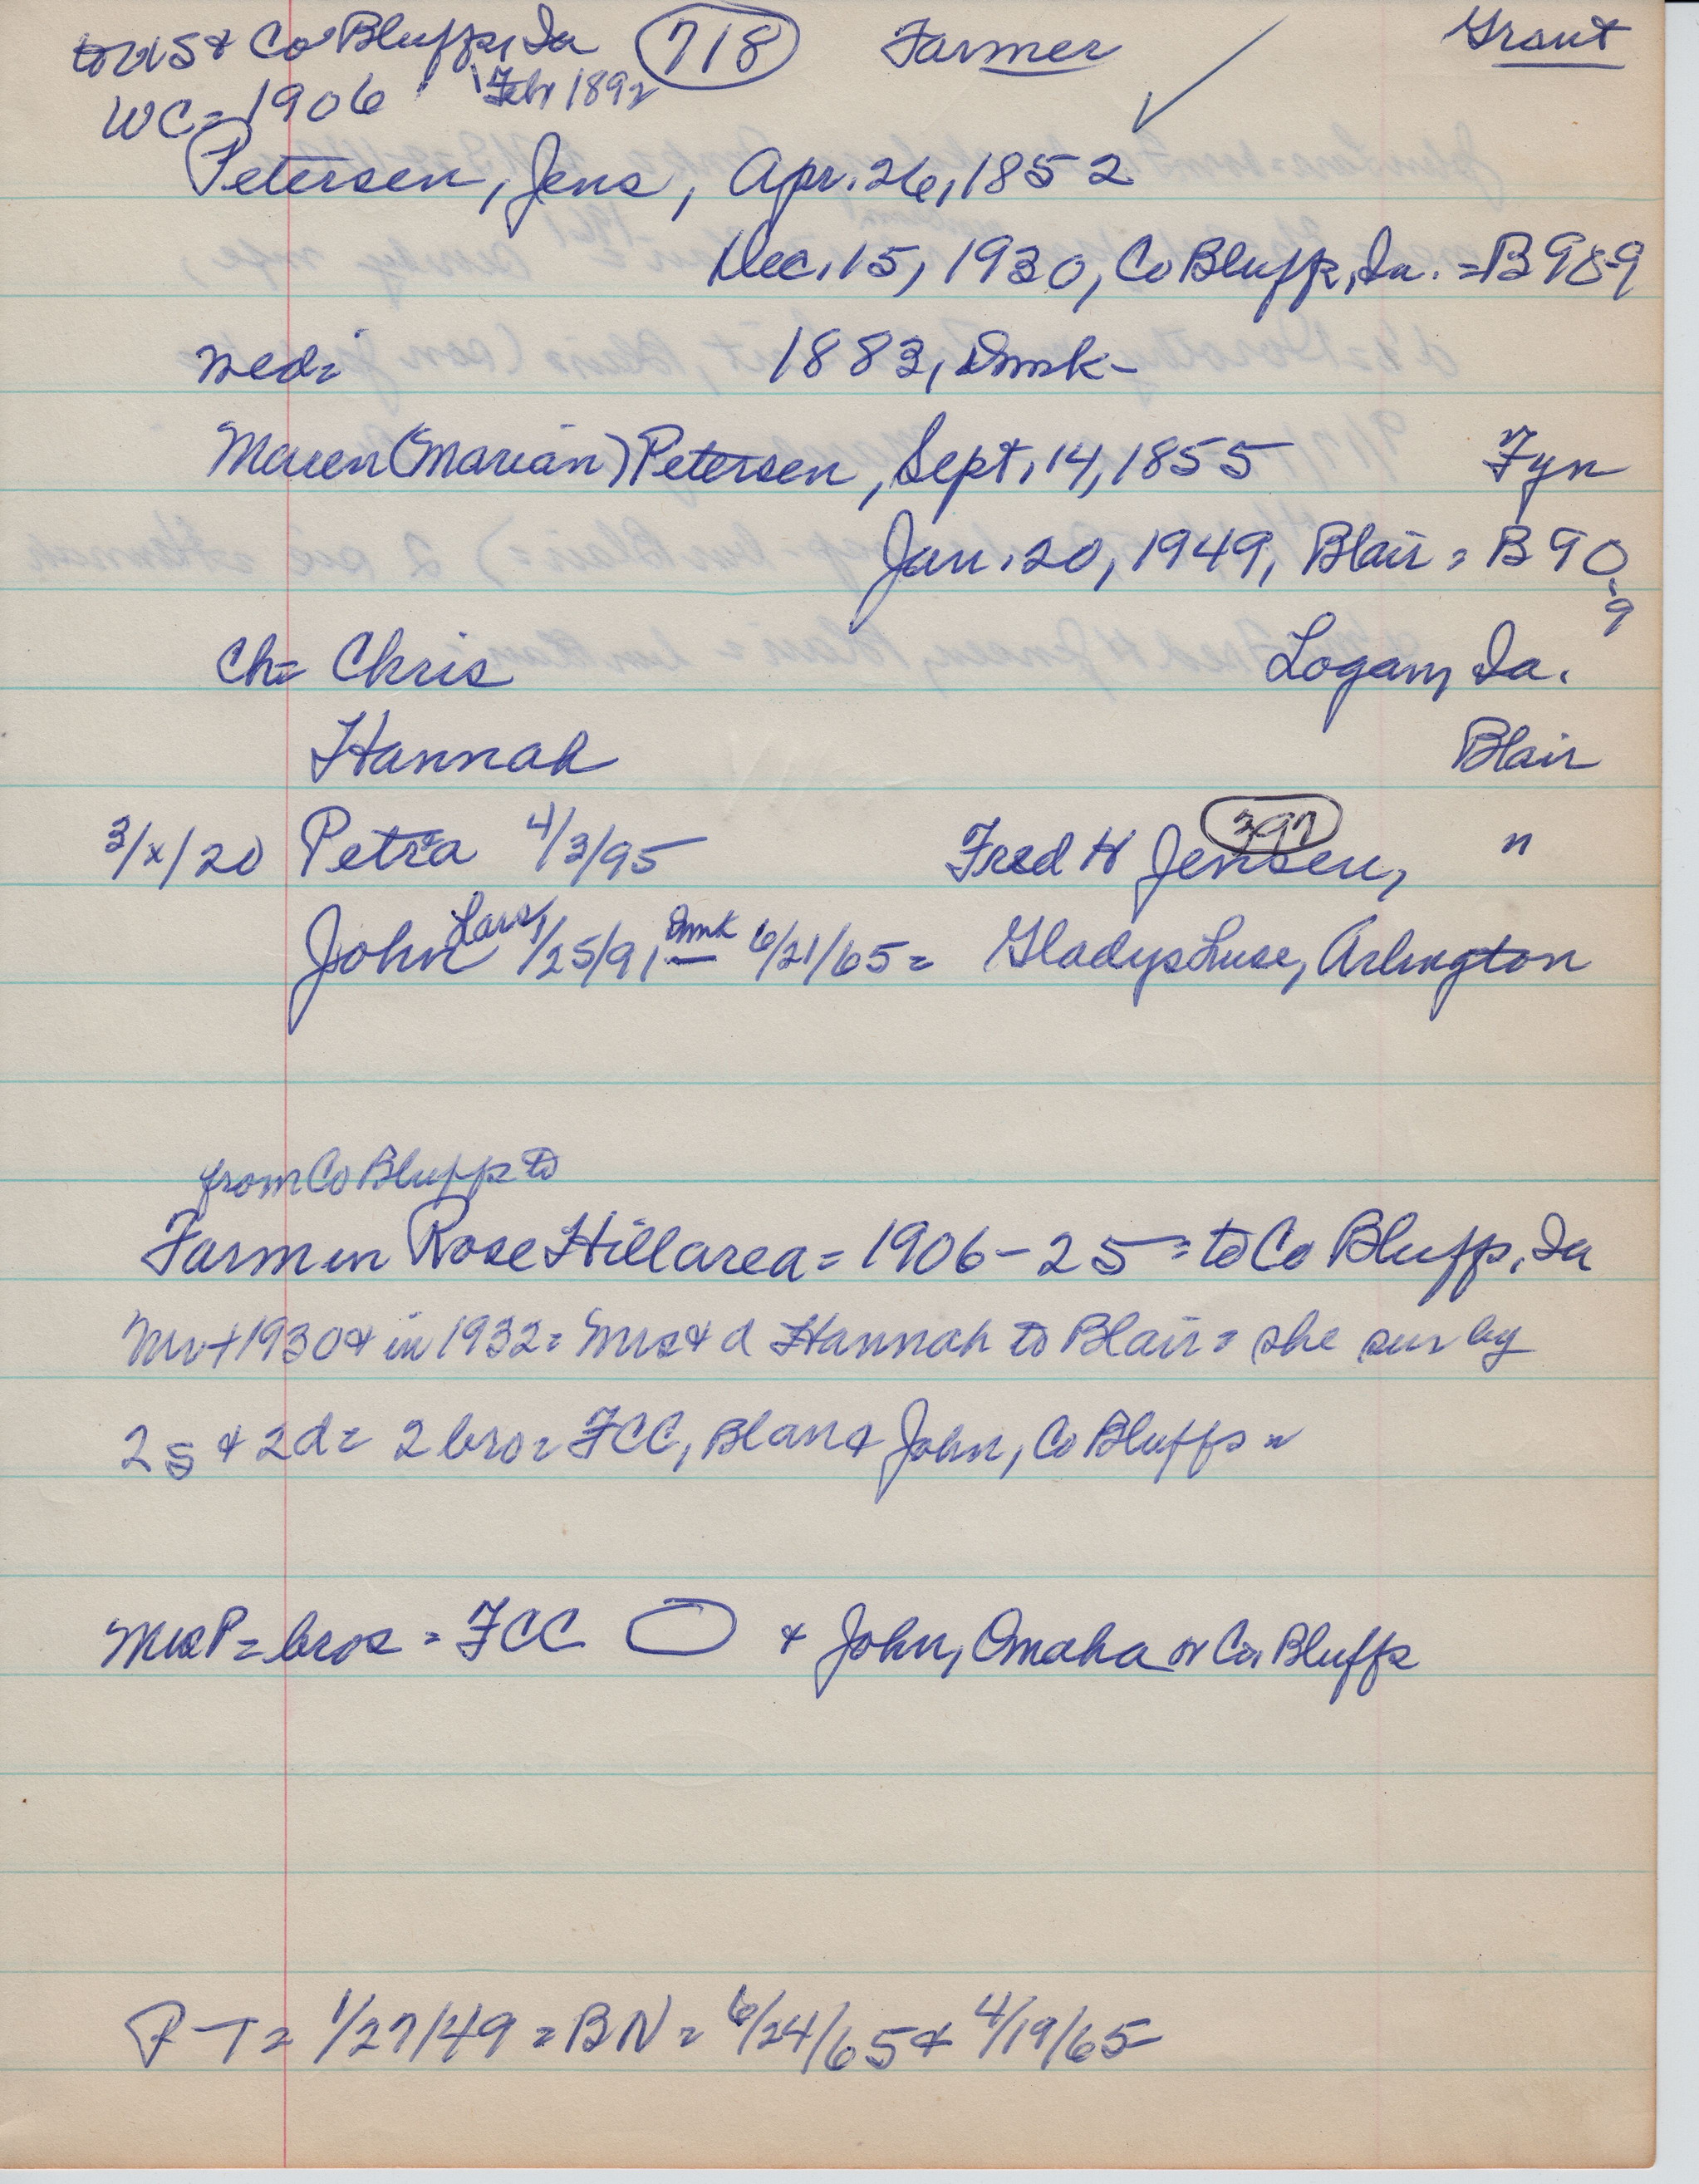 to US & Co Bluffs, Ia (718) Farmer Grant
WC = 1906 Feb 1892
Petersen, Jens, Apr. 26, 1852
Dec. 15, 1930, Co Bluffs, Ia. = B 98-9
wed = 1883, Dmk -
Maren (Marian) Petersen, Sept. 14, 1855 Fyn
Jan. 20, 1949, Blair = B 90-9
ch = Chris Logan, Ia.
Hannah Blair
3/x/20 Petra 4/3/95 Fred H Jensen, "
John Lars, 1/25/91 Dmk - 6/21/65 = Gladys Luse, Arlington
from Co Bluffs to
Farm in Rose Hill area = 1906 - 25 = to Co Bluffs, Ia
Mr + 1930 & in 1932 = Mrs & d Hannah to Blair = she sur by
2 s & 2 d = 2 bro = FCC, Blair & John, Co Bluffs =
Mrs P = bros = FCC & John, Omaha or Co. Bluffs
P-T = 1/27/49 = BN = 6/24/65 & 4/19/65